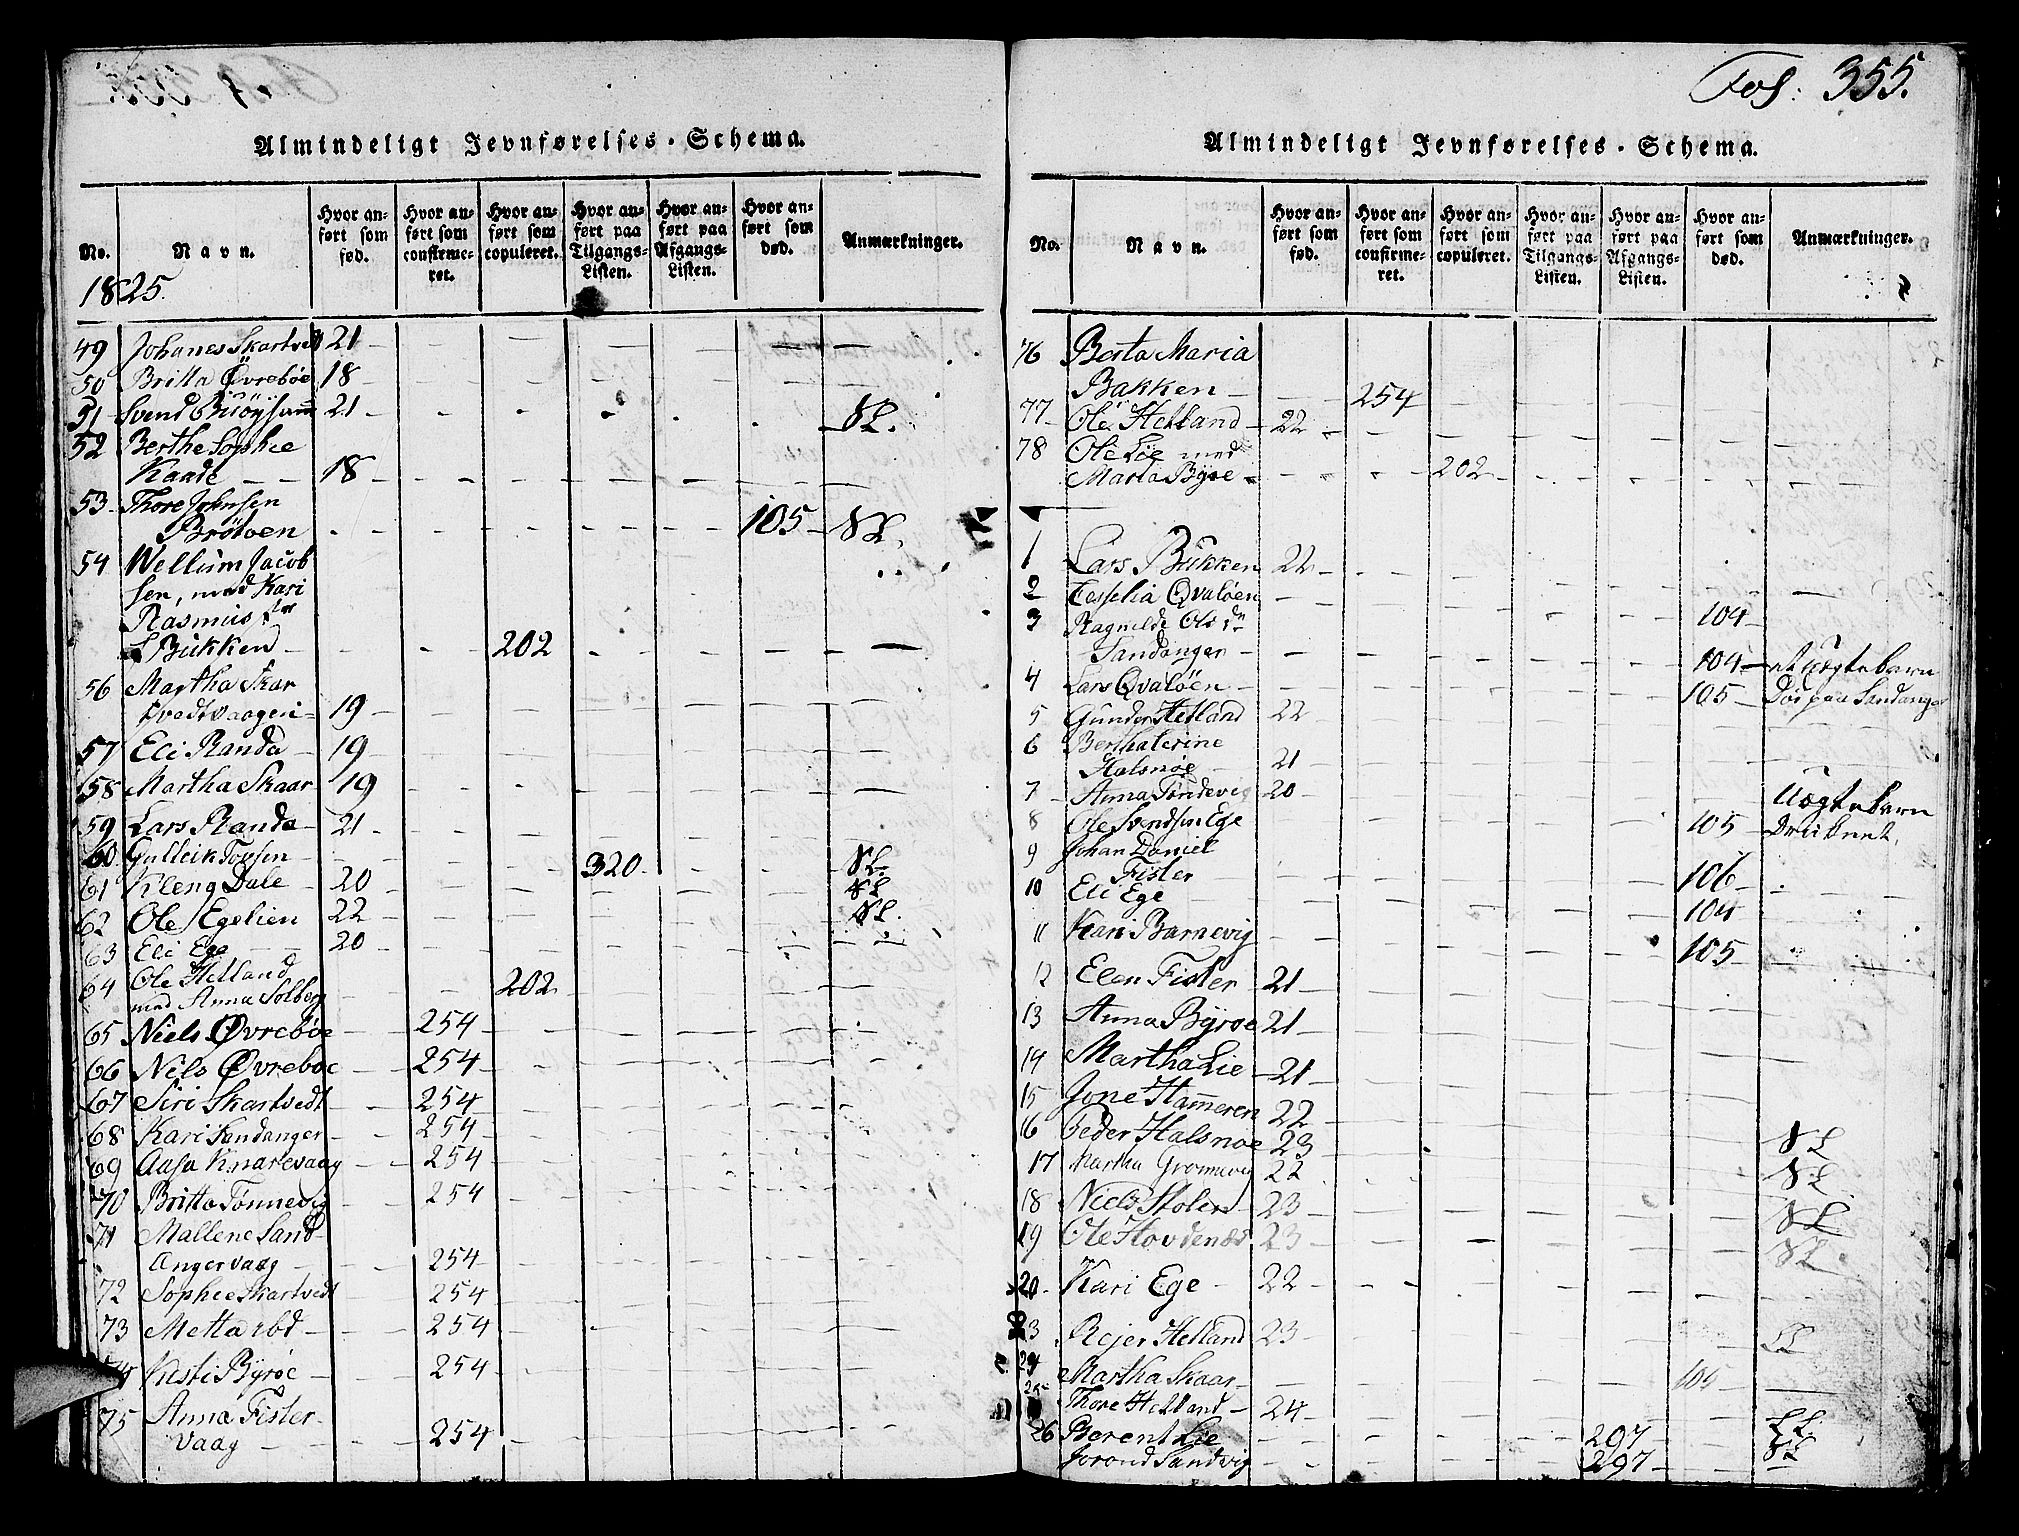 Fol: 355.
Almindeligt Jevnførelses-Schema.
No. Navn. Hvor anført som fød. Hvor anført som confirmeret. Hvor anført som copuleret. Hvor anført paa Tilgangs-Listen. Hvor anført paa Afgangs-Listen. Hvor anført som død. Anmærkninger.
1825.
49 Johanes Skartvedt 21
50 Britta Øvrebøe 18
51 Svend 21 SL.
52 Berthe Sophie
Kaade 18
53 Thore Johnsen
Brøtoen 105 SL.
54 Wellum Jacob
sen, med Kari
Rasmus
Bukken 202
56 Martha Skar
tvedtvaagen 19
57 Eli Randa 19
58 Martha Skaar 19
59 Lars Randa 21
60 Gulleik Torsen 320 SL.
61 Kleng Dale 20 SL
62 Ole Egelien 22 SL.
63 Eli Ege 20
64 Ole Helland
med Anna Solberg 202
65 Niels Øvrebøe 254
66 Nils Øvreboe 254
67 Siri Skartvedt 254
68 Kari Sandanger 254
69 Aasa Knarevaag 254
70 Britta Tønnevig 254
71 Mallene Sand
angervaag 254
72 Sophie Skartvedt 254
73 Metta ibd 254
Kisti Byrøe 254
75 Anna Fister
vaag 254
Almindeligt Jevnførelses-Schema.
No. Navn. Hvor anført som fød. Hvor anført som confirmeret. Hvor anført som copuleret. Hvor anført paa Tilgangs-Listen. Hvor anført paa Afgangs-Listen. Hvor anført som død. Anmærkninger.
76 Berta Maria
Bakken 254
77 Ole Helland 22
78 Ole Lie med
Marta Byrøe 202
1 Lars Bukken 22
2 Cesselia Qvaløen
3 Ragnilde Ols dn 104
Sandanger 104 et Uægtebarn
4 Lars Qvaløen 105 Død paa Sandanger
5 Gunder Helland 22
6 Berthaterine
Halsnøe 21
7 Anna Tøndevig 20 Uægtebarn
8 Ole Svendsen Ege 105 Druknet,
9 Johan Daniel
Fister 106
10 Eli Ege 104
11 Kari Barnevig 105
12 Elen Fister 21
13 Anna Byrøe 21
14 Martha Lie 21
15 Jone Hammeren 22
16 Peder Halsnøe 23 SL
17 Martha 22 SL
18 Niels Stolen 23 SL
19 Ole Hovdenæs 23 SL
20. Kari Ege 22
23 Rejer Helland 23
24 Martha Skaar
Thore Helland 24
26 Berent Lie 297
Jorond Sandvig 297 SL